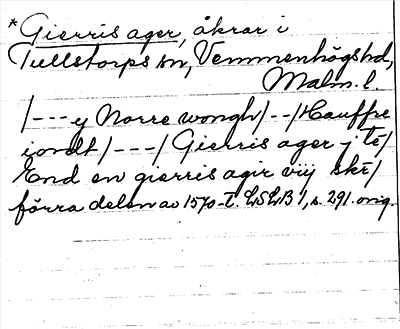 *Gierris ager, åkrar i
Tullstorps sn, Vemmenhögs hd,
Malm. l.
/---y Norre wongh/--/Hauffre
iordt/---/Gierris ager j té/
End en gierris agir vij skr/
förra delen av 1570-t. LSLB 1, s. 291. orig.